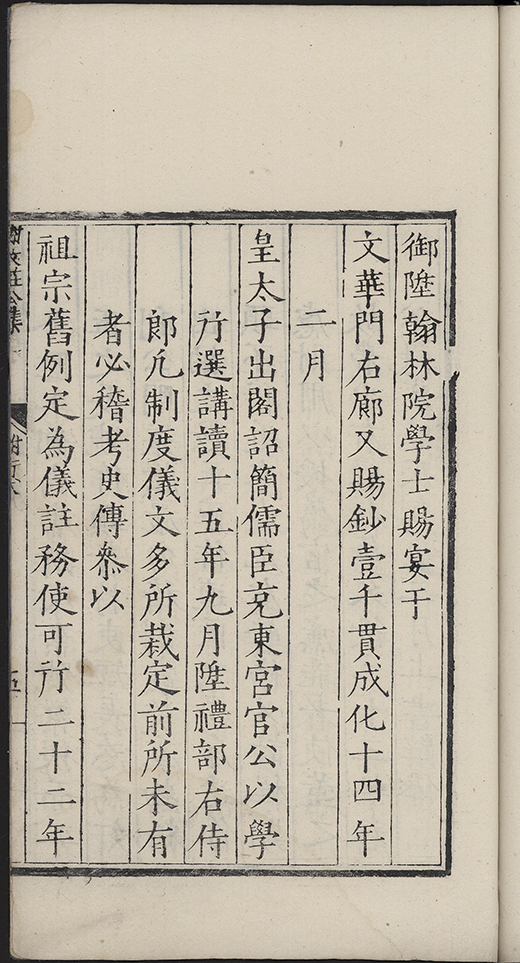 御陞翰林院學士賜宴于
文華門右廊又賜鈔壹千貫成化十四年
二月
皇太子出閣詔簡儒臣充東宮官公以學
行選講讀十五年九月陞禮部右侍
郎凡制度儀文多所裁定前所未有
者必稽考史傳叅以
祖宗舊例定為儀註務使可行二十二年